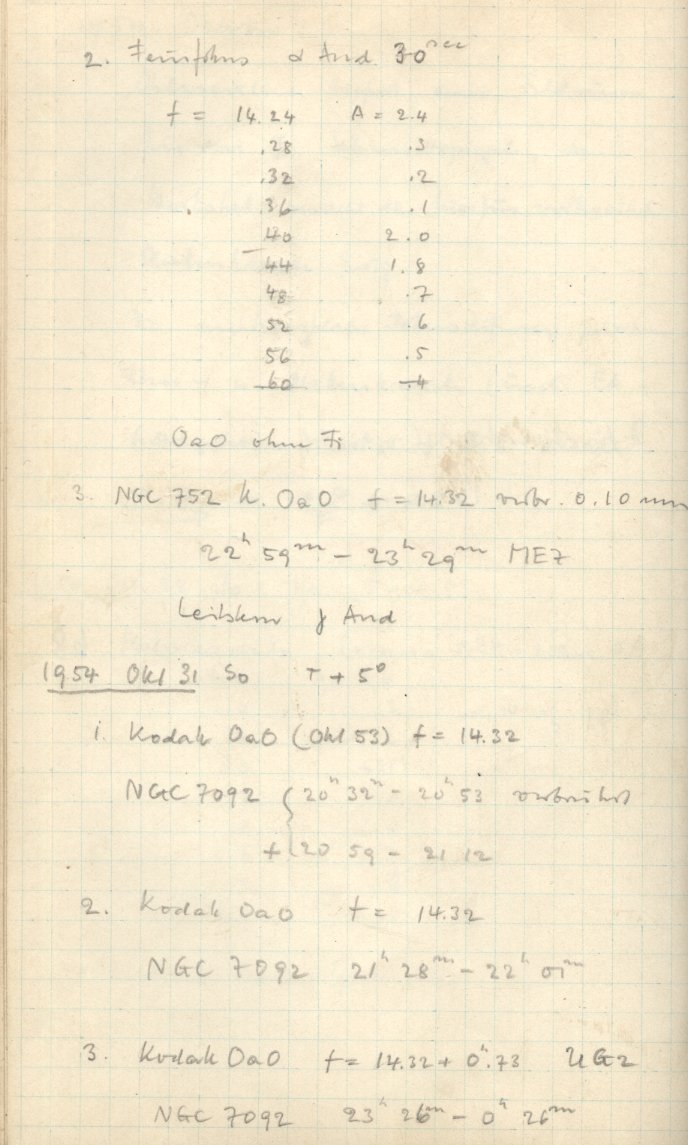 2. Feinfokus α And. 30 sec
f = 14.24 A = 2.4
.28 .3
.32 .2
.36 .1
40 2.0
44 1.8
48 .7
52 .6
56 .5
60 .4
OaO ohne Fi
3. NGC 752 K. OaO f = 14.32 verbr. 0.10 mm
22h 59m - 23h 29m MEZ
Leitstern γ And
1954 Okt 31 So T + 5°
1. Kodak OaO (Okt 53) f = 14.32
NGC 7092 { 20h 32m - 20h 53 verbreitert
+ { 20 59 - 21 12
2. Kodak OaO f = 14.32
NGC 7092 21h 28m - 22h 01m
3. Kodak OaO f = 14.32 + 0.73 UG2
NGC 7092 23h 26m - 0h 26m